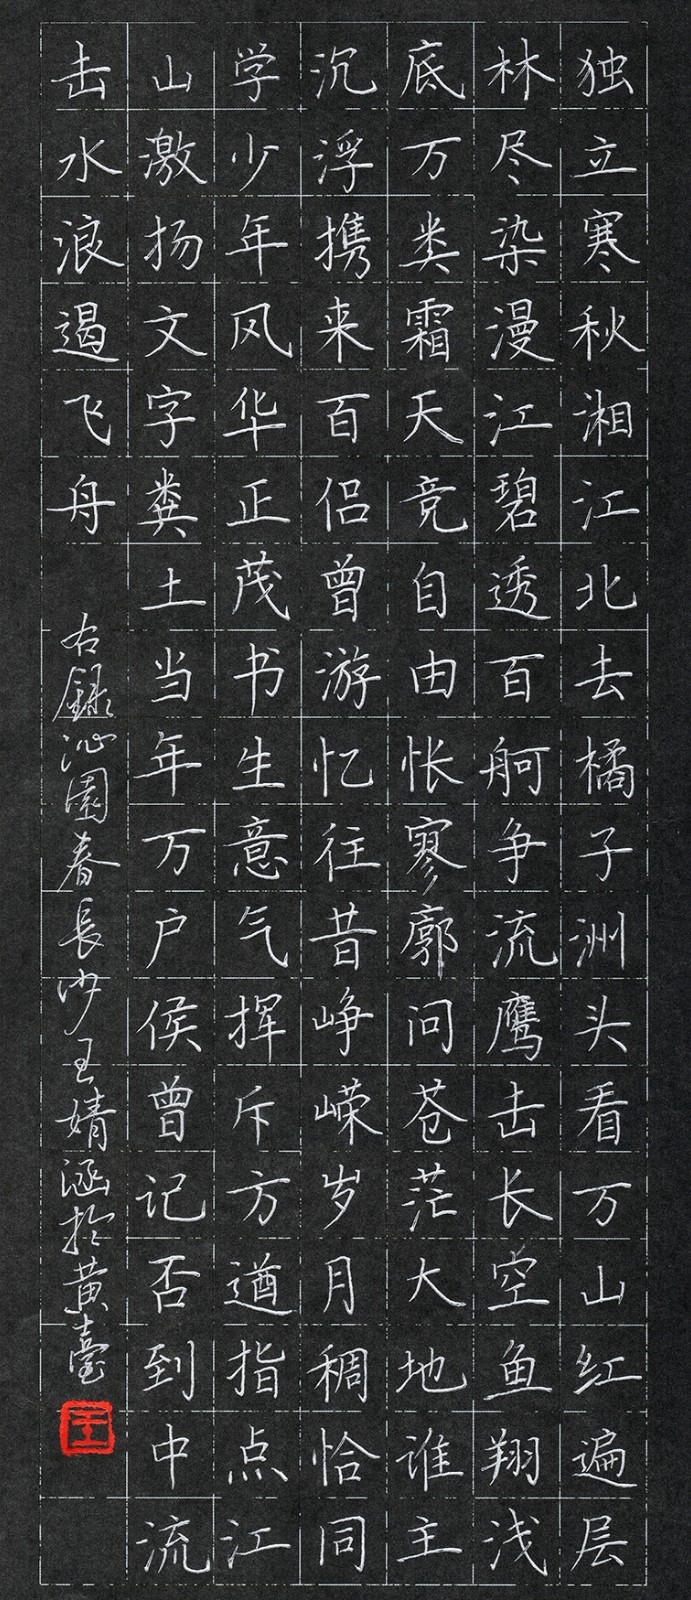 独立寒秋湘江北去橘子洲头看万山红遍层
林尽染漫江碧透百舸争流鹰击长空鱼翔浅
底万类霜天竞自由怅寥廓问苍茫大地谁主
沉浮携来百侣曾游忆往昔峥嵘岁月稠恰同
学少年风华正茂书生意气挥斥方遒指点江
山激扬文字粪土当年万户侯曾记否到中流
击水浪遏飞舟
右録沁園春長沙王婧涵於黄臺
王